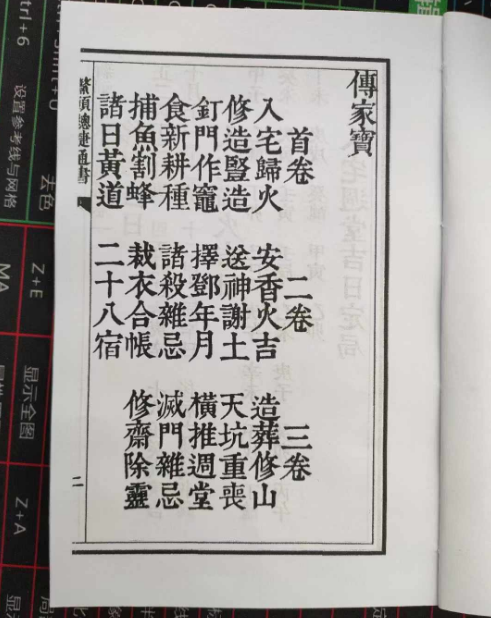 傳家寶
首卷 二卷 三卷
入宅歸火 安香火吉 造葬修山
修造豎造 送神謝土 天坑重喪
釘門作竈 擇鄧年月 橫推週堂
食新耕種 諸殺雜忌 滅門雜忌
捕魚割蜂 裁衣合帳 修齋除靈
諸日黃道 二十八宿
鰲頭總捷通書 二
设置参考线与网格
去色
Z+E
显示全图
Z+A